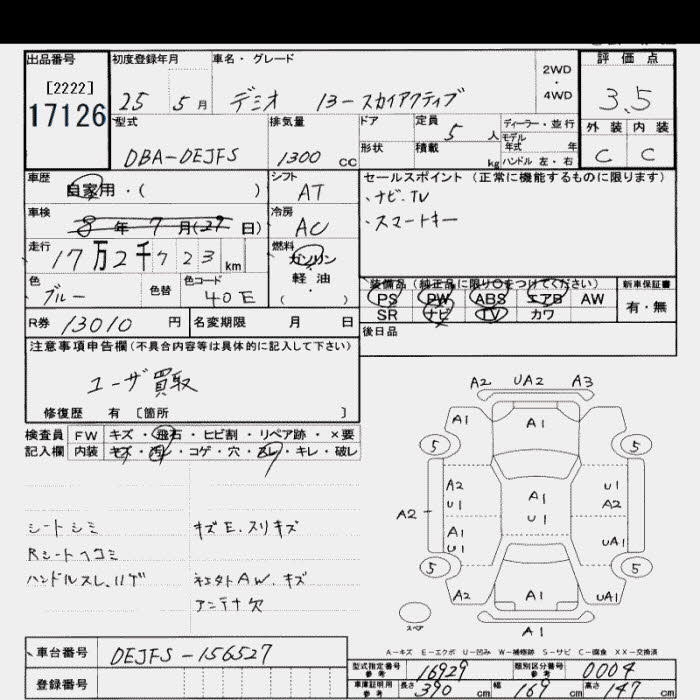 出品番号 初度登録年月 車名・グレード 2WD・4WD 評価点
[2222]
17126
25 5月 デミオ 13-スカイアクティブ 3.5
型式 排気量 ドア 定員 5人 ディーラー・並行 外装 内装
モデル年式 年
DBA-DEJFS 1300cc 形状 積載 kg ハンドル 左・右 C C
車歴 自家用・( ) シフト AT セールスポイント (正常に機能するものに限ります)
・ナビ.TV
・スマートキー
車検 8年7月(29日) 冷房 AC
走行 17万2千723km 燃料 ガソリン 軽油 ・( )
色 ブルー 色替 色コード 40E
装備品(純正品に限り○をつけてください) 新車保証書
PS PW ABS エアB AW 有・無
SR ナビ TV カワ
R券 13010円 名変期限 月 日 後日品
注意事項申告欄(不具合内容等は具体的に記入して下さい)
ユーザ買取
修復歴 有 [箇所 ]
検査員 FW キズ・飛石・ヒビ割・リペア跡・×要
記入欄 内装 キズ・汚レ・コゲ・穴・スレ・キレ・破レ
シートシミ キズE.スリキズ
Rシートヘコミ
ハンドルスレ.ハゲ 社外AW.キズ
アンテナ欠
A2 UA2 A3
A1 A1
5 5
A2 U1 A1 U1 U1 A2
A2
A1 U1 UA1
5 5
A2 A1 UA1
スペア
A1
A-キズ E-エクボ U-凹み W-補修跡 S-サビ C-腐食 XX-交換済
車台番号 DEJFS-156527
登録番号
型式指定番号 参考 16929 類別区分番号 参考 0004
車庫証明用 参考 長さ 390cm 幅 169cm 高さ 147cm